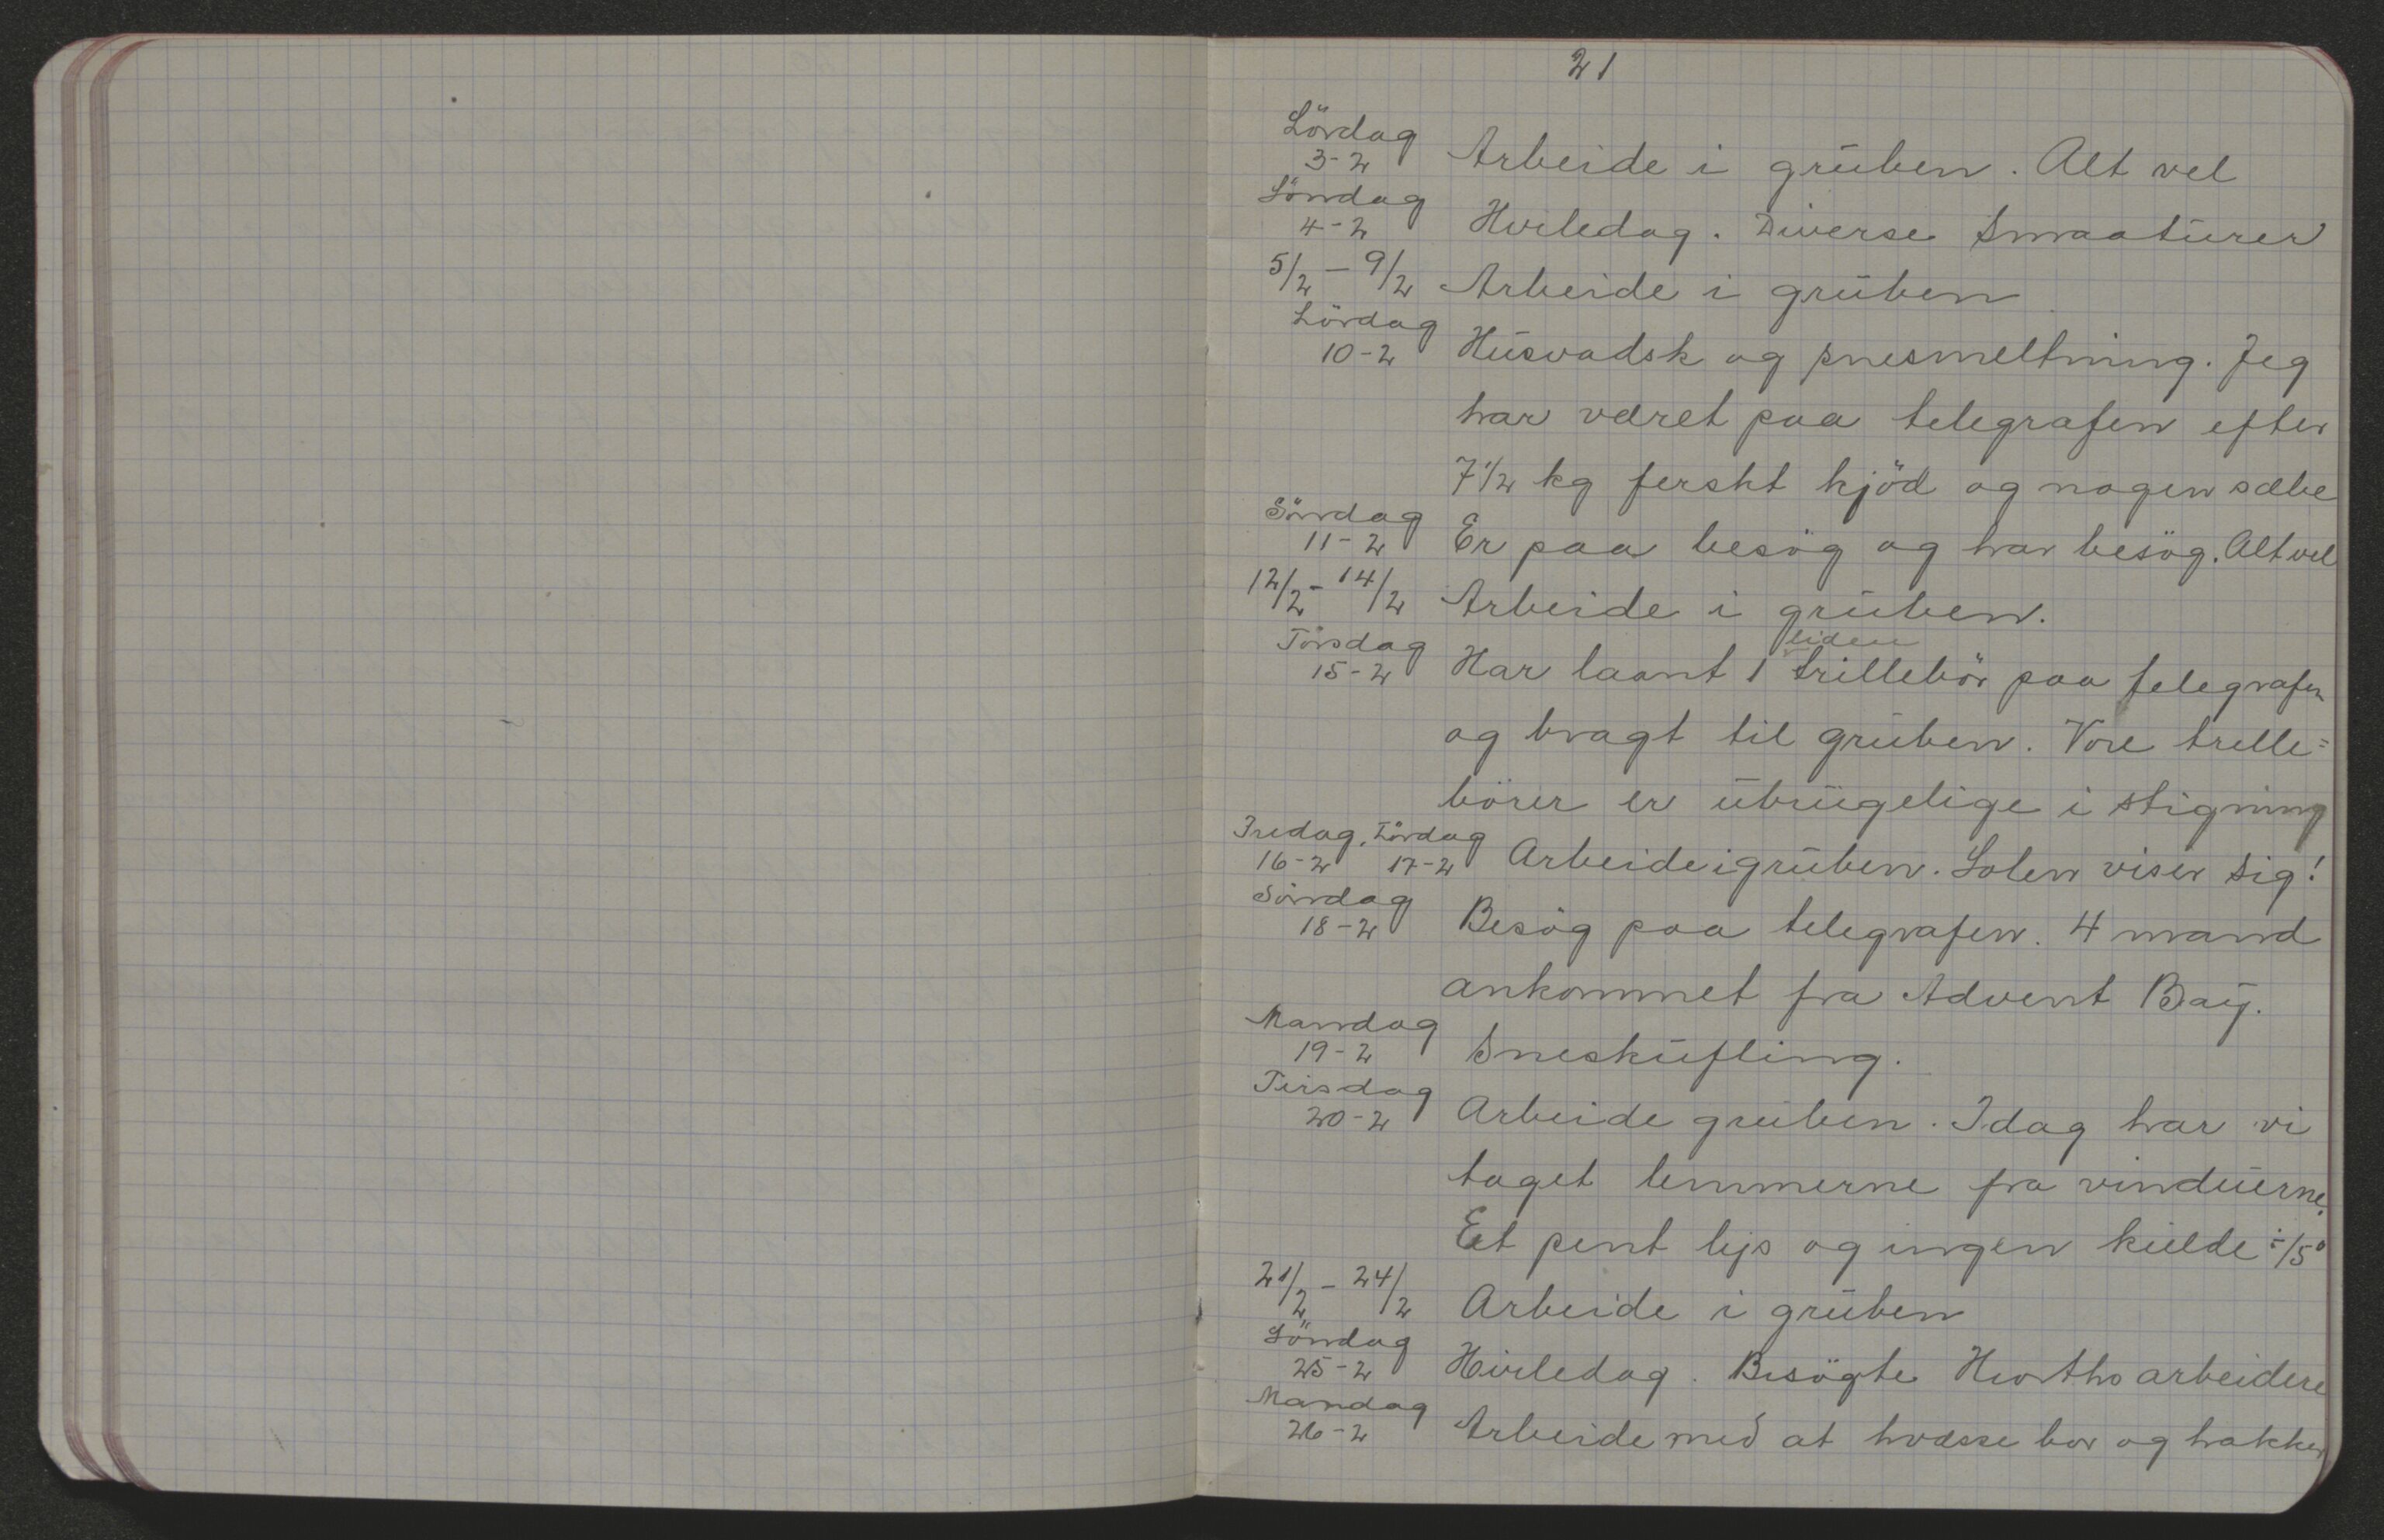 21
Lördag
3-2 Arbeide i grüben. Alt vel
Söndag
4-2 Hviledag. Diverse Smaatürer
5/2 - 9/2 Arbeide i grüben
Lördag
10-2 Hüsvadsk og snesmeltning. Jeg
har været paa telegrafen efter
7 1/2 kg ferskt kjöd og nogen sæbe
Söndag
11-2 Er paa besög og har besög. Alt vel
12/2 - 14/2 Arbeide i grüben.
liden
Torsdag
15-2 Har laant 1 trillebör paa telegrafen
og bragt til grüben. Vore trille=
börer er übrügelige i stigning
Fredag, Lördag
16-2 17-2 Arbeide i grüben. Solen viser sig!
Söndag
18-2 Besög paa telegrafen. 4 mand
ankommet fra Advent Bay.
Mandag
19-2 Snesküfling.
Tirsdag
20-2 Arbeide grüben. Idag har vi
taget lemmerne fra vindüerne.
Et pent lys og ingen külde ÷15°
21/2 - 24/2 Arbeide i grüben
Söndag
25-2 Hviledag. Besögte Hiorths arbeidere
Mandag
26-2 Arbeide med at hvæsse bor og hakker